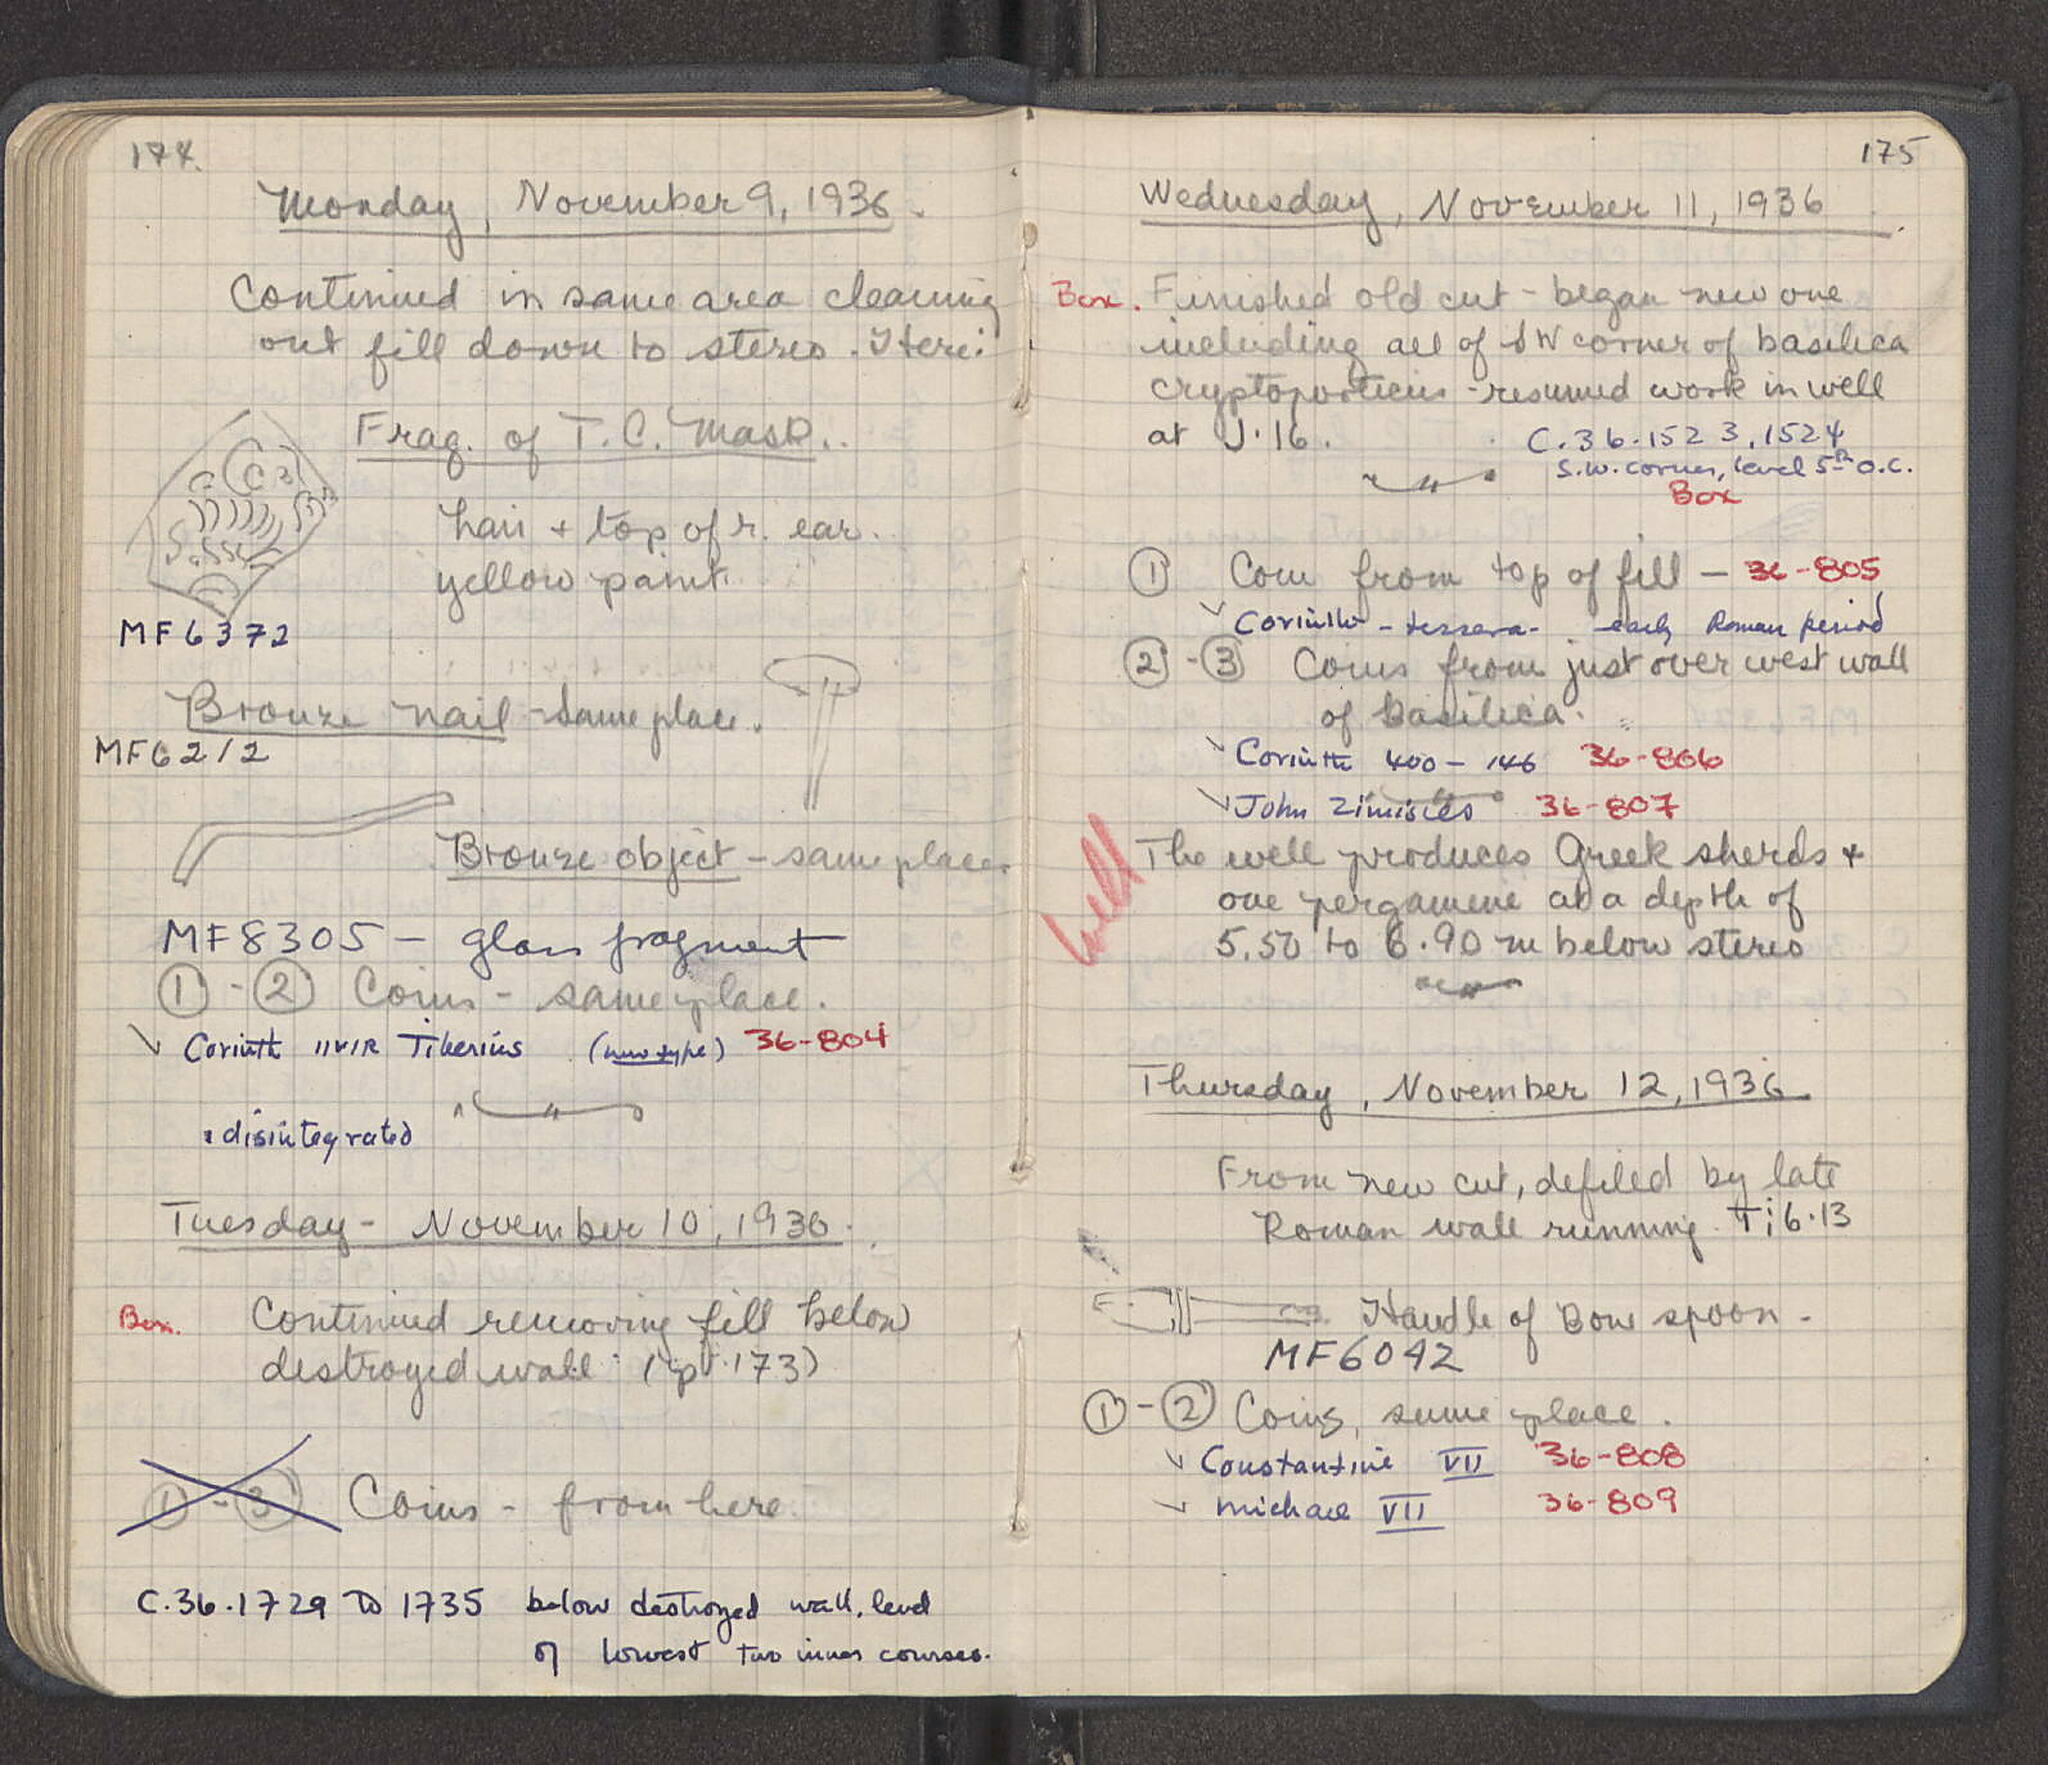 174.
Monday, November 9, 1936.
Continued in same area clearing
out fill down to stereo. Here:
Frag. of T.C. Mask.
hair + top of r. ear.
yellow paint.
MF6372
Bronze nail - same place.
MF6212
Bronze object - same place.
MF8305 - glass fragment
① - ② Coins - same place.
Corinth IIVIR Tiberius (new type) 36-804
disintegrated
Tuesday - November 10, 1936.
Box. Continued removing fill below
destroyed wall (p. 173)
① - ③ Coins - from here.
C.36.1729 to 1735 below destroyed wall, level
of lowest two inner courses.
175
Wednesday, November 11, 1936.
Box. Finished old cut - began new one
including all of SW corner of basilica
cryptoporticus - resumed work in well
at J.16.
C.36.1523, 1524
S.W. corner, level 5th o.c.
Box
① Coin from top of fill - 36-805
Corinth - tessera - early Roman period
② - ③ Coins from just over west wall
of basilica.
Corinth 400 - 146 36-806
John Zimisces 36-807
Well
The well produces Greek sherds +
one pergamene at a depth of
5.50 to 6.90 m below stereo
Thursday, November 12, 1936.
From new cut, defiled by late
Roman wall running
Handle of Bone spoon.
MF6042
① - ② Coins, same place.
Constantine VII 36-808
Michael VII 36-809